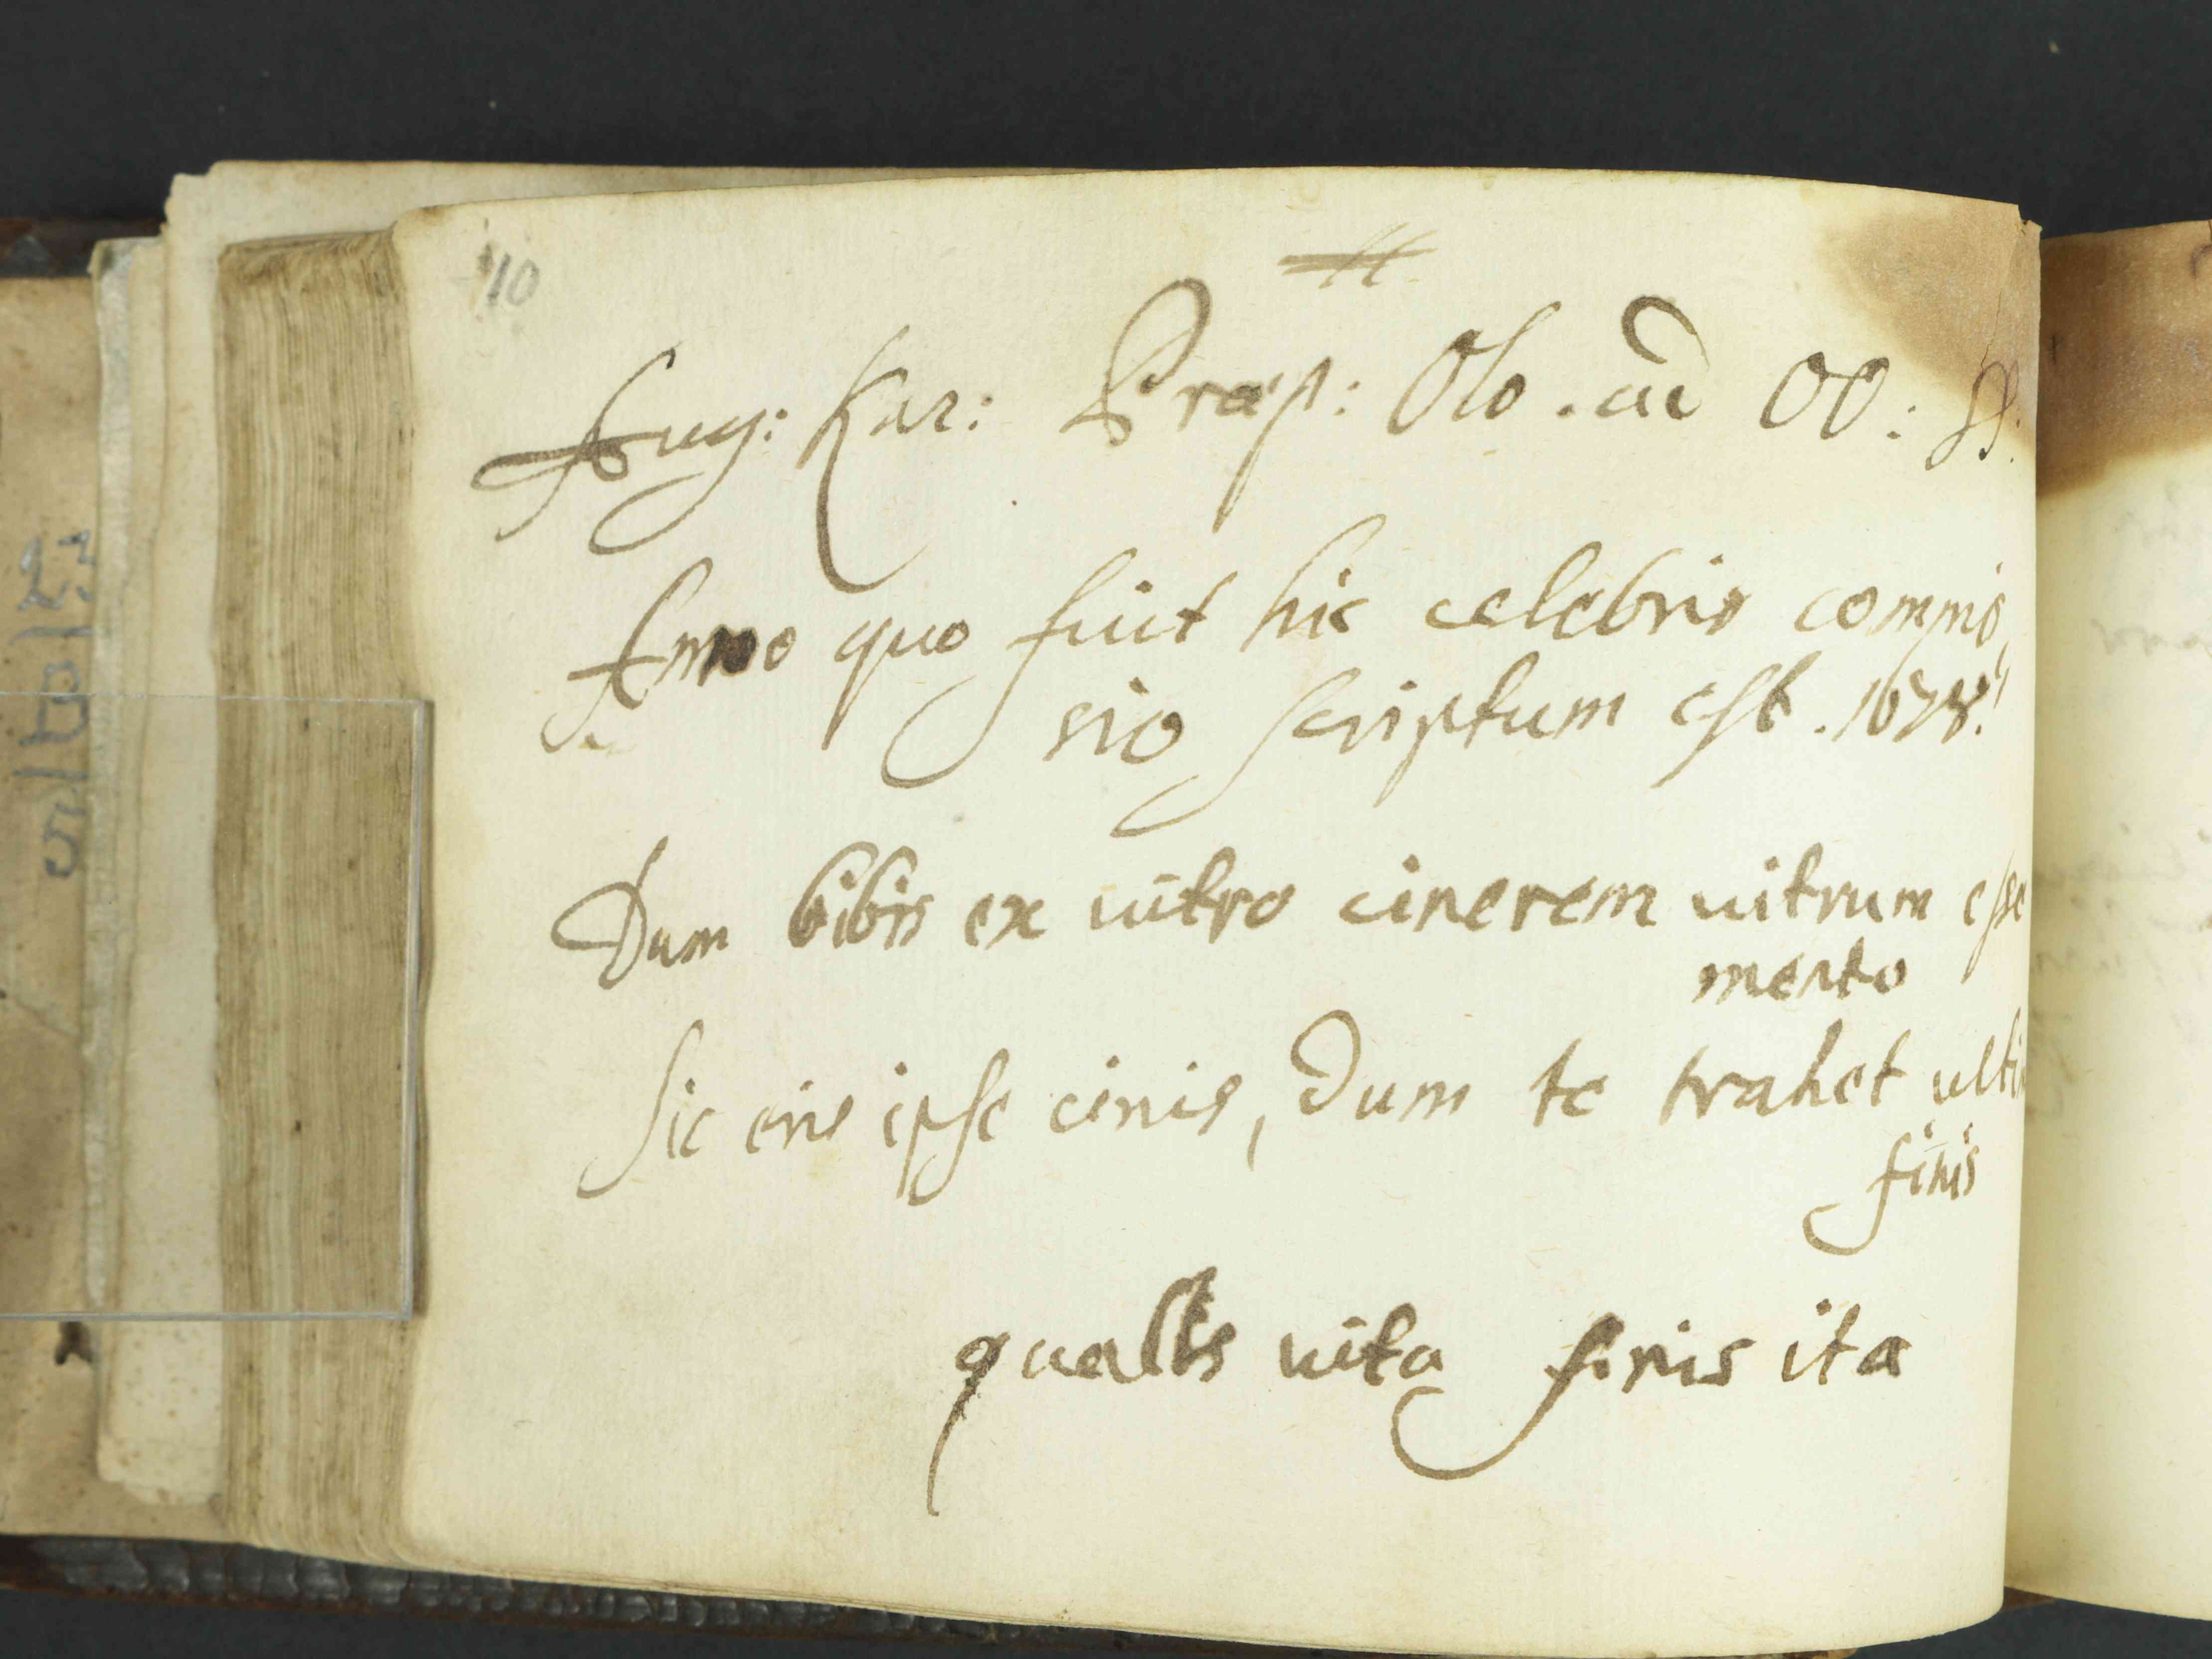 110
Aug: Kar: Præp: Olo. ad OO: SS.
Anno quo fuit hic celebris commis,
sio scriptum est. 1678.
Dum bibis ex vitro cinerem uitrum esse
mento
Sic eris ipse cinis, dum te trahet
finis
qualis uita finis ita